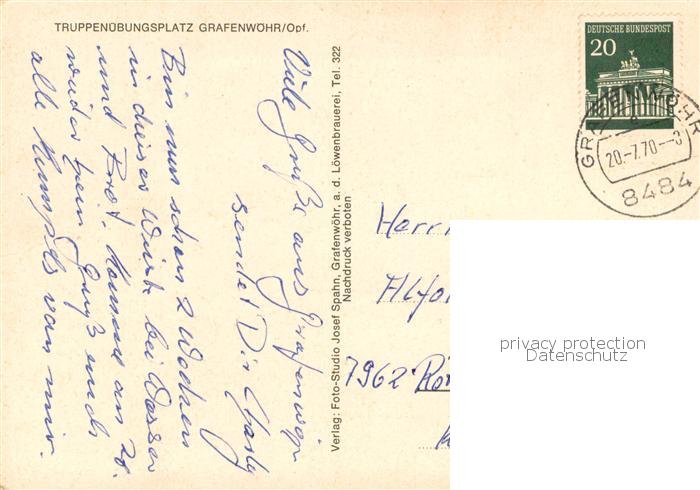 TRUPPENÜBUNGSPLATZ GRAFENWÖHR/Opf.
Viele Grüße aus Grafenwöhr
sendet Dir
Bin nun schon 2 Wochen
in dieser Wüste bei Wasser
und Brot. Komme am 28.
wieder heim. Gruß auch
alle Kumpels von mir.
Verlag: Foto-Studio Josef Spahn, Grafenwöhr, a. d. Löwenbrauerei, Tel. 322
Nachdruck verboten
DEUTSCHE BUNDESPOST
20
GRAFENWÖHR
20.-7.70.--3
8484
Herrn
Alfo
7962
privacy protection
Datenschutz